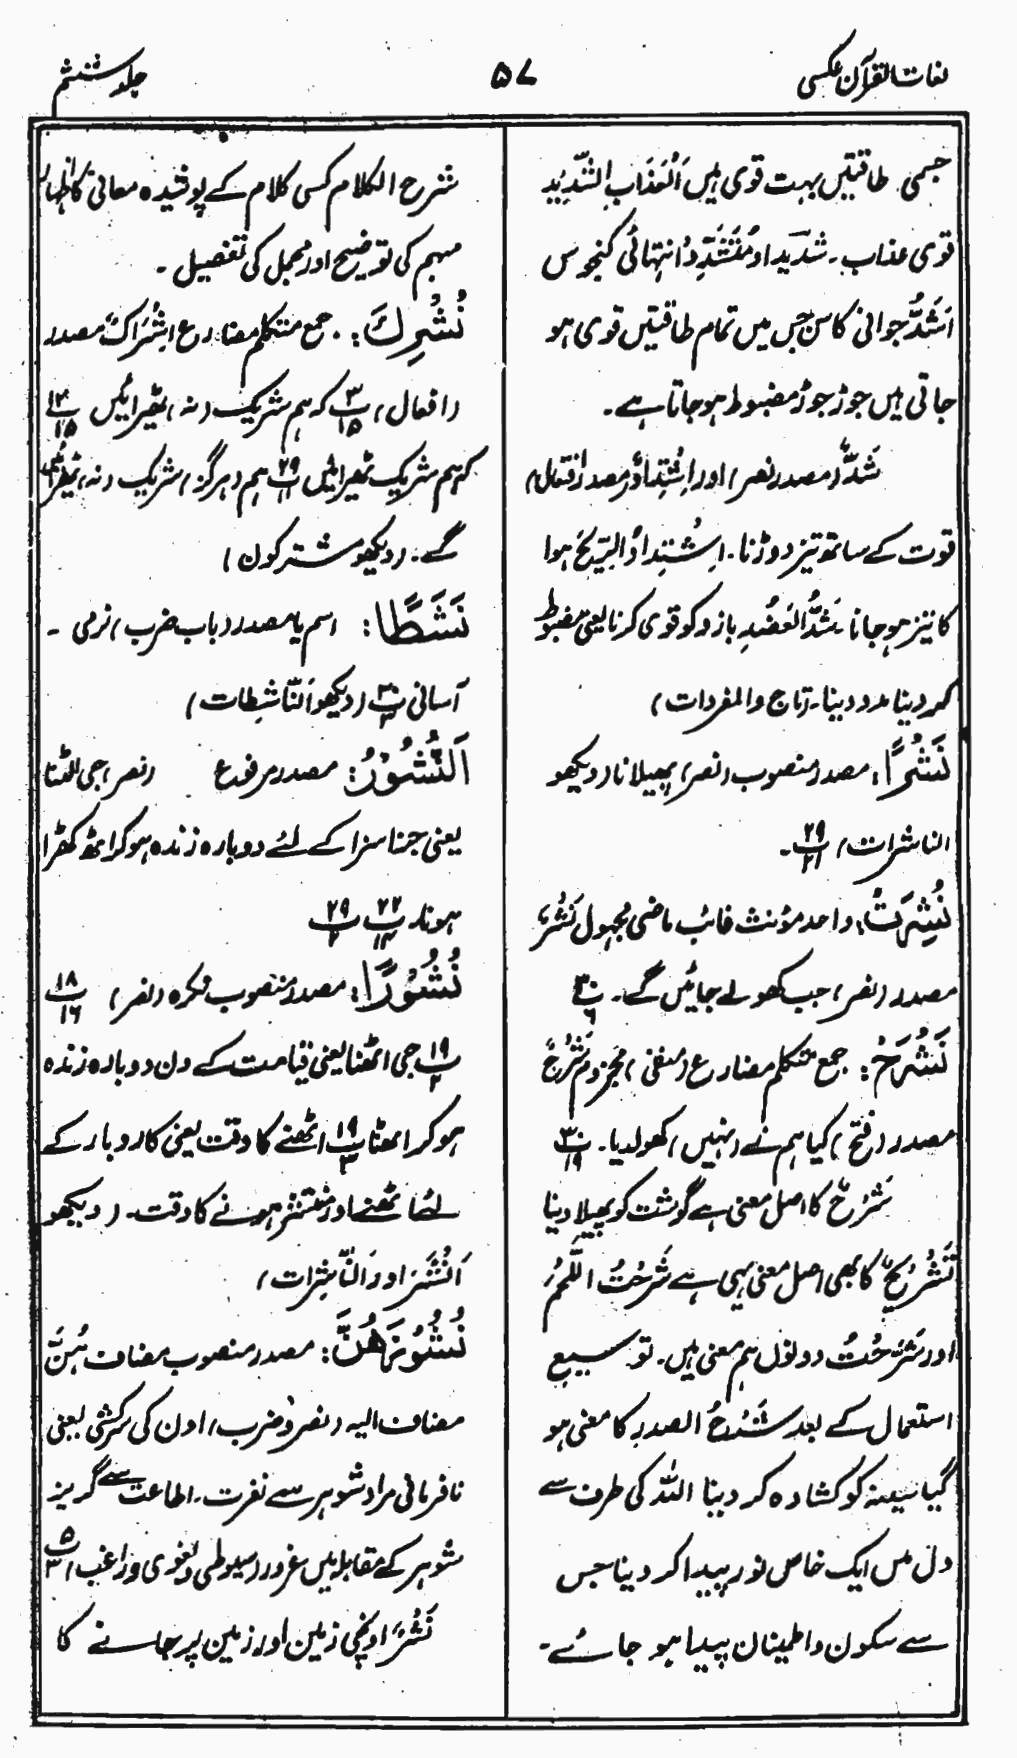 لغات القرآن عکسی
۵۷
جلد ششم
جسمی طاقتیں بہت قوی ہیں اَلْعَذَابِ الشَّدِيْدِ
قوی عذاب۔ شَدِیْد اور مُتَشَدِّدٌ انتہائی کنجوس
اَشُدٌّ جوانی کا سن جس میں تمام طاقتیں قوی ہو
جاتی ہیں جوڑ جوڑ مضبوط ہو جاتا ہے۔
شَدٌّ (مصدر نصر) اور اِشْتِدَادٌ (مصدر افتعال)
قوت کے ساتھ تیز دوڑنا۔ اِشْتِدَادُ الرِّيْحِ ہوا
کا تیز ہو جانا۔ شَدُّ الْعَضُدِ بازو کو قوی کرنا یعنی مضبوط
کر دینا مدد دینا۔ (تاج والمفردات)
نَشْرًا: مصدر منصوب (نصر) پھیلانا (دیکھو
الناشرات) ۲۹/۲۱۔
نُشِرَتْ: واحد مؤنث غائب ماضی مجہول نَشْرٌ
مصدر (نصر) جب کھولے جائیں گے۔ ۳۰/۶
نَشْرَحْ: جمع متکلم مضارع (منفی) مجزوم شَرْحٌ
مصدر (فتح) کیا ہم نے (نہیں) کھولدیا۔ ۳۰/۱۹
شَرْحٌ کا اصل معنی ہے گوشت کو پھیلا دینا
تَشْرِيْحٌ کا بھی اصل معنی یہی ہے شَرَحْتُ اللَّحْمَ
اور شَرَّحْتُ دونوں ہم معنی ہیں۔ توسیع
استعمال کے بعد شَرْحُ الصدر کا معنی ہو
گیا سینہ کو کشادہ کر دینا اللہ کی طرف سے
دل میں ایک خاص نور پیدا کر دینا جس
سے سکون و اطمینان پیدا ہو جائے۔
شرح الکلام کسی کلام کے پوشیدہ معانی کا اظہار
مبہم کی توضیح اور مجمل کی تفصیل۔
نُشْرِكَ: جمع متکلم مضارع اِشْرَاكٌ مصدر
(افعال) ۳/۱۵ کہ ہم شریک (نہ) ٹھیرائیں ۱۳/۱۵
کہ ہم شریک ٹھیرائیں ۲۹/۱۱ ہم (ہرگز) شریک (نہ) ٹھیرائیں
گے۔ (دیکھو مشترکون)
نَشْطًا: اسم یا مصدر (باب ضرب) نرمی۔
آسانی ۳۰/۳ (دیکھو اَلنَّاشِطَات)
اَلنُّشُوْرُ: مصدر مرفوع (نصر) جی اٹھنا
یعنی جزا سزا کے لئے دوبارہ زندہ ہو کر اٹھ کھڑا
ہونا۔ ۲۲/۱۴ ۲۹/۲
نُشُوْرًا: مصدر منصوب نکرہ (نصر) ۱۸/۱۶
۱۹/۲ جی اٹھنا یعنی قیامت کے دن دوبارہ زندہ
ہو کر اٹھنا ۱۹/۳ اٹھنے کا وقت یعنی کاروبار کے
لئے اٹھنے اور منتشر ہونے کا وقت۔ (دیکھو
اَنْشَرَ اور اَلنَّاشِرَات)
نُشُوْزَهُنَّ: مصدر منصوب مضاف هُنَّ
مضاف الیہ (نصر و ضرب) اون کی سرکشی یعنی
نافرمانی مراد شوہر سے نفرت۔ اطاعت سے گریز
شوہر کے مقابلہ میں غرور (سیوطی و بغوی و راغب) ۵/۳
نَشْزٌ اونچی زمین اور زمین پر جانے کا